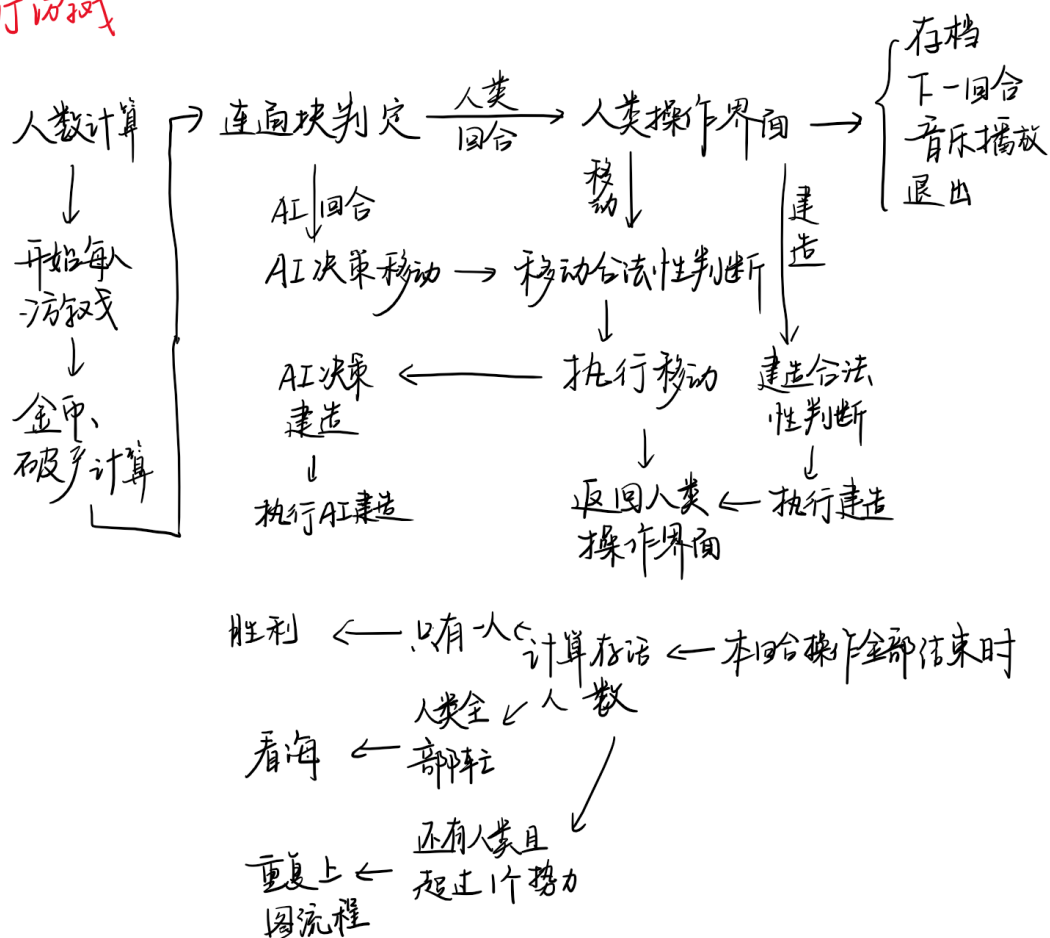 行游戏
人数计算
开始每人
游戏
金币、
破产计算
连通块判定
人类
回合
人类操作界面
存档
下一回合
音乐播放
退出
AI回合
移
动
建
造
AI决策移动
移动合法性判断
AI决策
建造
执行移动
建造合法
性判断
执行AI建造
返回人类
操作界面
执行建造
胜利
只有一人
计算存活
人数
本回合操作全部结束时
看海
人类全
部阵亡
重复上
图流程
还有人类且
超过1个势力